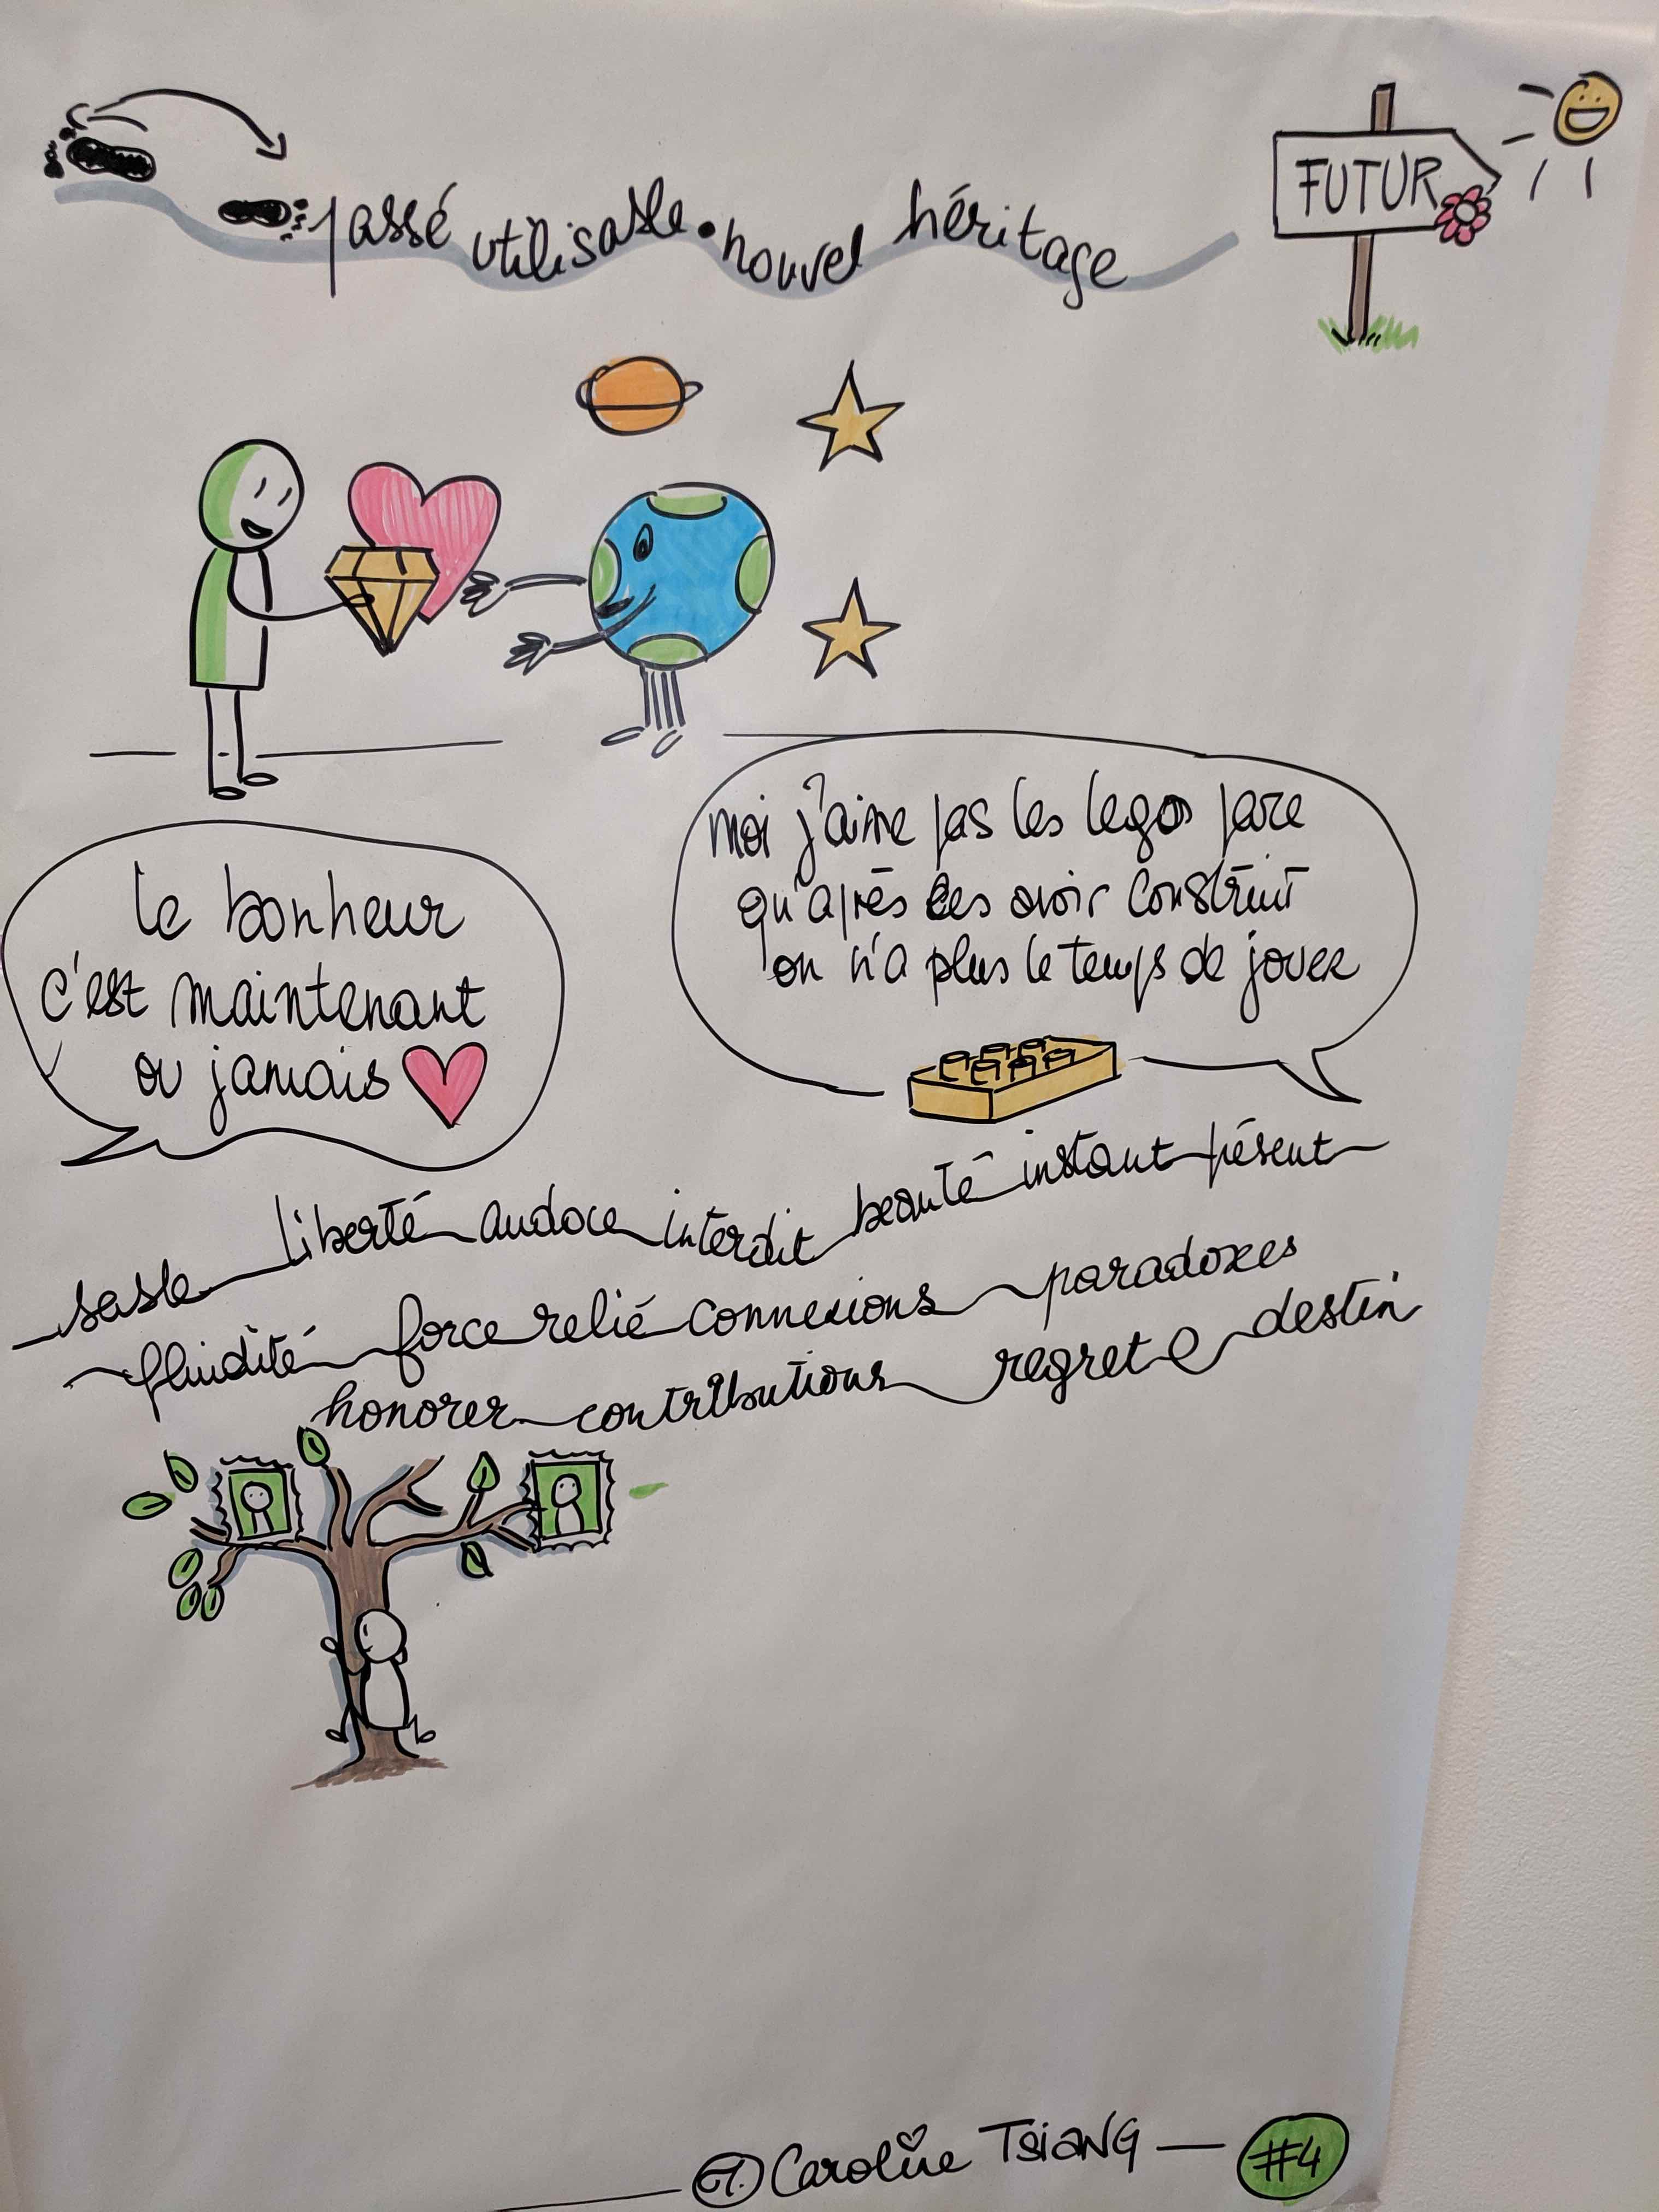 passé utilisable • nouvel héritage
FUTUR
moi j'aime pas les legos parce
qu'après les avoir construit
on n'a plus le temps de jouer
le bonheur
c'est maintenant
ou jamais
sable liberté audace interdit beauté instant présent
fluidité force relié connexions paradoxes
honorer contributions regret destin
Caroline TSIANG — #4